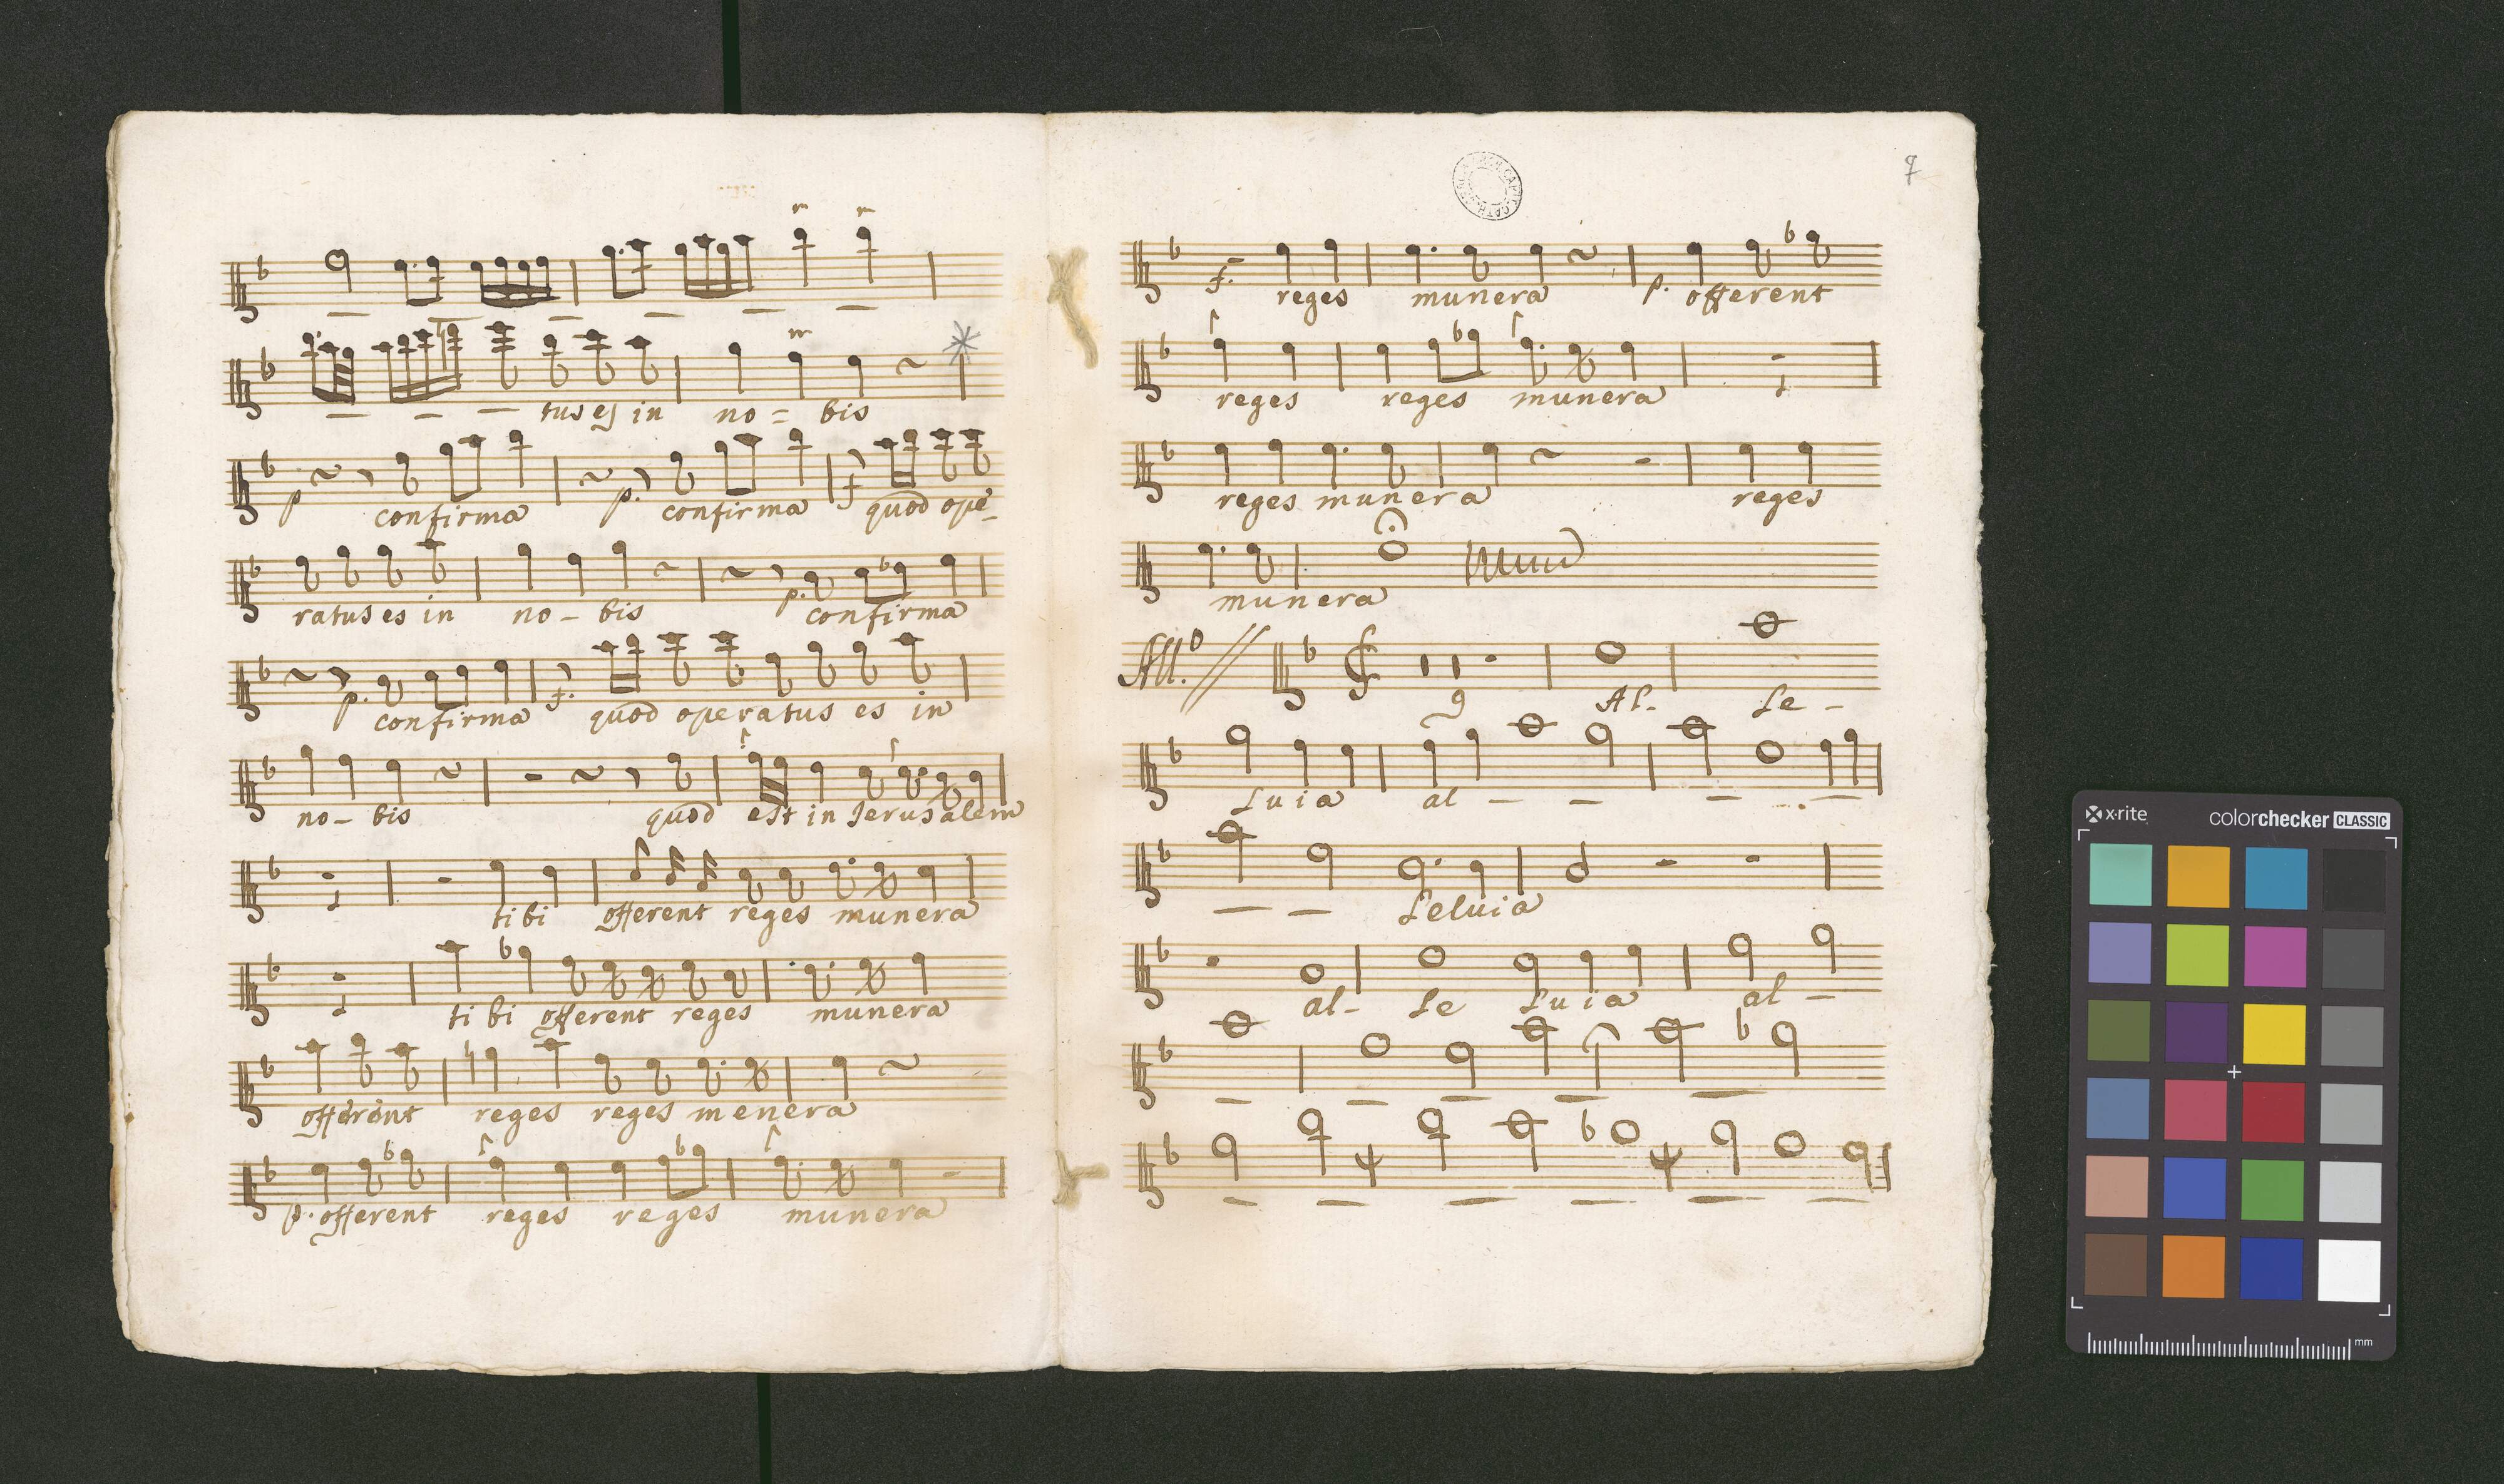 tus es in no = bis
p confirma p. confirma f quod ope-
ratus es in no - bis p. confirma
p. confirma f. quod operatus es in
no - bis quod est in Jerusalem
tibi offerent reges munera
tibi offerent reges munera
offerent reges reges menera
p. offerent reges reges munera
7
f. reges munera p. offerent
reges reges munera
reges munera reges
munera
All.º 9 Al- le -
luia al - - - -
- - leluia
al- le luia al -
x·rite colorchecker CLASSIC
mm